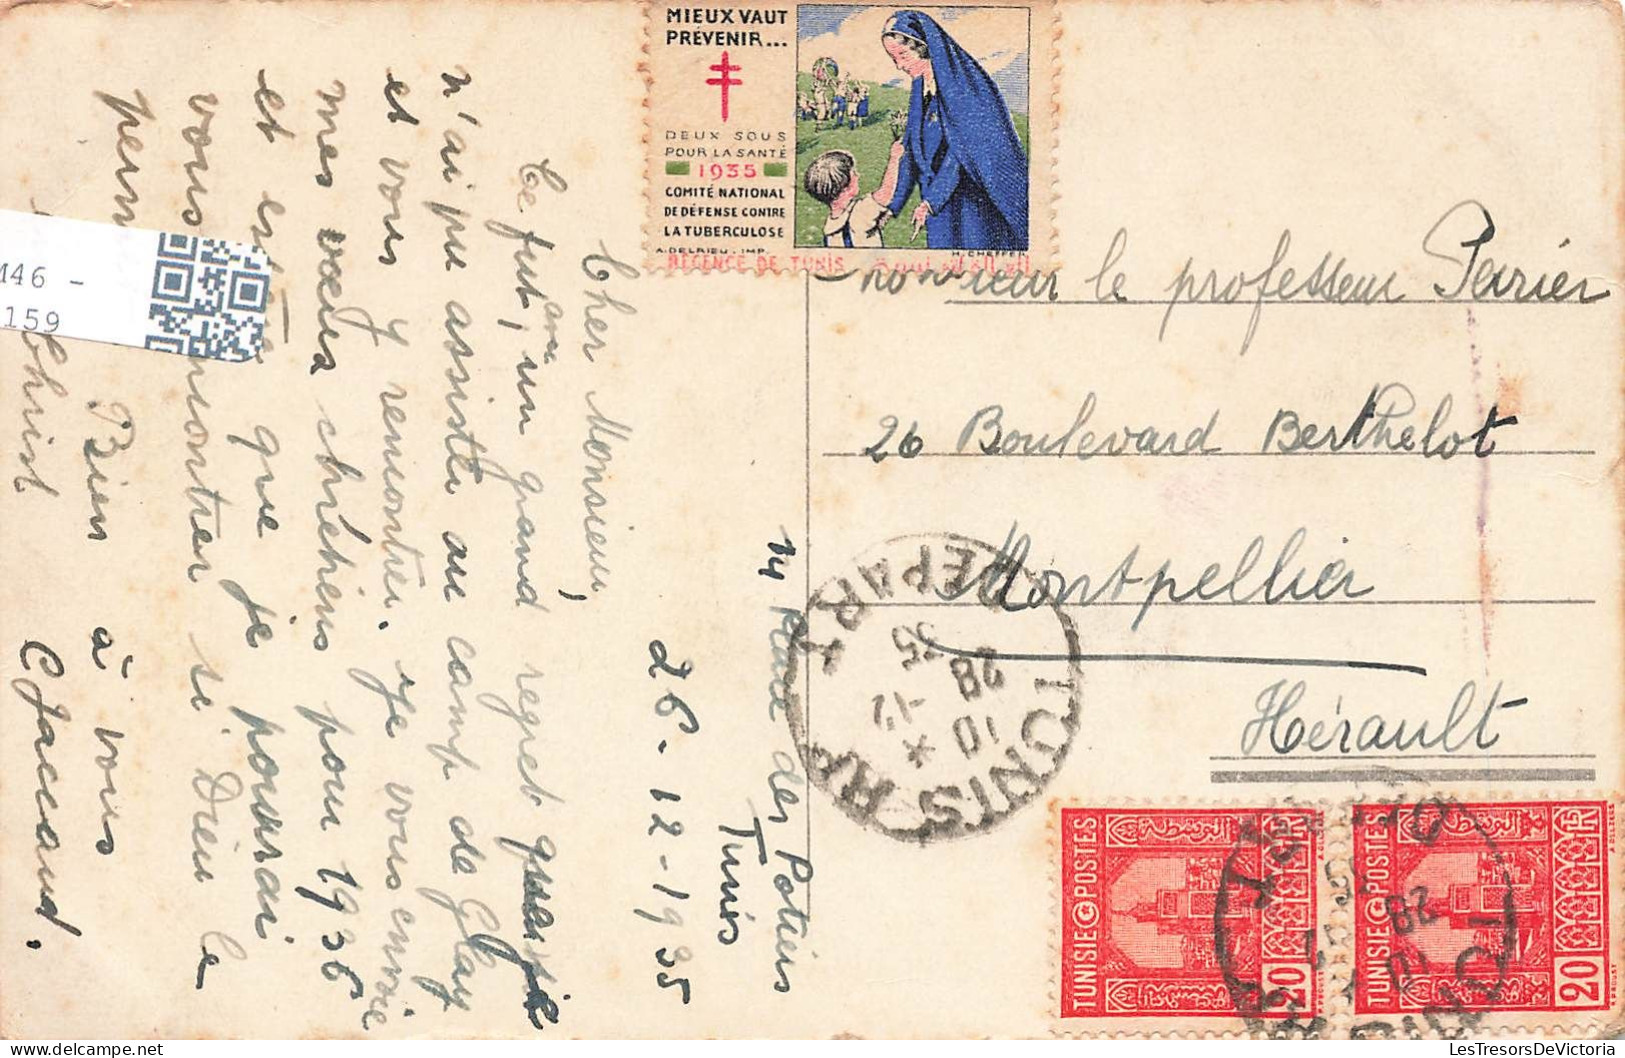 MIEUX VAUT
PRÉVENIR...
DEUX SOUS
POUR LA SANTÉ
1935
COMITÉ NATIONAL
DE DÉFENSE CONTRE
LA TUBERCULOSE
A. DELRIEU. IMP.
H. CHEFFER
RÉGENCE DE TUNIS
14 Place des Potiers
Tunis
26-12-1935
Cher Monsieur,
Ce fut, un grand regret que je
n'ai pu assister au camp de Glay
et vous y rencontrer. Je vous envoie
mes vœux chrétiens pour 1936
et que je pourrai
vous rencontrer si Dieu le
Bien à vous
Christ
C Jaccard.
Monsieur le professeur Perrier
26 Boulevard Berthelot
Montpellier
Hérault
TUNIS RP
DEPART
10 *
28 -12
35
TUNISIE POSTES
20
TUNISIE POSTES
20
M46 -
159
LesTresorsDeVictoria